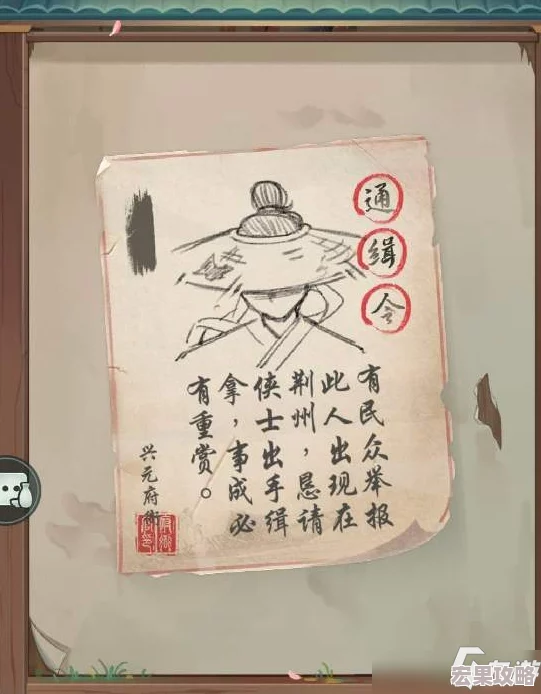 通缉令
有民众举报
此人出现在
荆州，恳请
侠士出手缉
拿，事成必
有重赏。
兴元府衙
宏果攻略